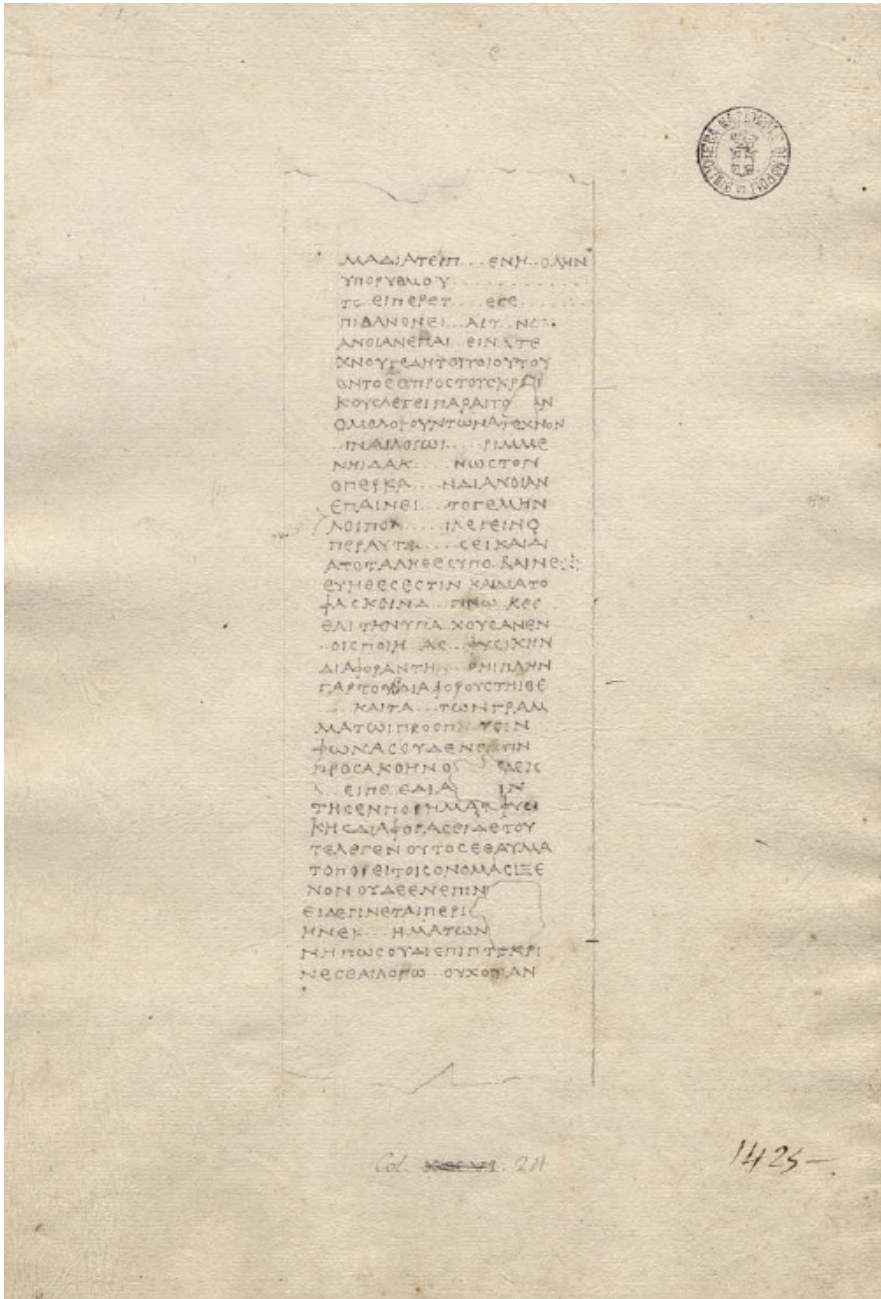 BIBLIOTECA NAZIONALE DI NAPOLI
ΜΑΔΙΑΤΕΡΠ...ΕΝΗ..ΟΛΗΝ
ΥΠΟΡΥΘΜΟΥ............
ΤϹ ΕΙΠΕΡΕΤ...ΕϹΕ......
ΠΙΘΑΝΟΝΕΙ...ΑΙΤ.ΝΟ
ΑΝΟΙΑΝΕΠΑΙ.ΕΙΝ.ΤΕ
ΧΝΟΥΓΕΔΗΤΟΥΤΟΙΟΥΤΟΥ
ΟΝΤΟϹΟΠΡΟϹΤΟΥϹΚΡΙΤΙ
ΚΟΥϹΛΕΓΕΙΠΑΡΑΙΤΟ ΑΝ
ΟΜΟΛΟΓΟΥΝΤΩΝΑΤΕΧΝΟΝ
..ΙΝΑΙΛΟΓΩΙ....ΡΙΜΜΕ
ΝΗΙΔΑΚ....ΝΩϹΤΟΝ
ΟΠΕΡΚΑ...ΝΔΙΑΝΟΙΑΝ
ΕΠΑΙΝΕΙ...ΤΟΓΕΜΗΝ
ΛΟΙΠΟΝ....ΙΛΕΓΕΙΝΟ
ΠΕΡΑΥΤΑ....ϹΕΙΚΑΙΔΙ
ΑΤΟΤΑΛΗΘΕϹΥΠΟ.ΒΑΙΝΕ
ΕΥΗΘΕϹΕϹΤΙΝ ΚΑΙΔΙΑΤΟ
ΦΑϹΚΕΙΝΔ..ΠΝΩ.ΚΕϹ
ΘΑΙ ΤΗΝΥΠΑ.ΧΟΥϹΑΝΕΝ
.ΟΙϹΠΟΙΗ.ΑϹ..ΦΥϹΙΚΗΝ
ΔΙΑΦΟΡΑΝΤΗΝ..ΟΗΙΠΛΗΝ
ΓΑΡΤΟΥΔΙΑΦΟΡΟΥϹΤΗΙΘΕ
...ΚΑΙΤΑ...ΤΩΝΓΡΑΜ
ΜΑΤΩΙΠΡΟϹΠ..ΠΤΕΙΝ
ΦΩΝΑϹΟΥΔΕΝΕϹΤΙΝ
ΠΡΟϹΑΚΟΗΝΟ ΔΕΙϹ
..ΕΙΠΕ.ΕΔΙΑ ΙΝ
ΤΗϹΕΝΠΟΗΜΑϹΙΦΥϹΙ
ΚΗϹΔΙΑΦΟΡΑϹΕΙΔΕΤΟΥ
ΤΕΛΕΓΕΝ ΟΥΤΟϹΕΘΑΥΜΑ
ΤΟΠΟΙΕΙΤΟΙϹΟΝΟΜΑϹΙΞΕ
ΝΟΝ ΟΥΔΕΕΝΕΠΙΝ
ΕΙΔΕΓΙΝΕΤΑΙΠΕΡΙ
ΗΝΕΚ...ΗΜΑΤΩΝ
ΝΗΠΩϹΟΥΔΙΕΠΙΠΤΕΚΡΙ
ΝΕϹΘΑΙΛΟΓΩ..ΟΥΧΟΤΑΝ
Col. 24
1425